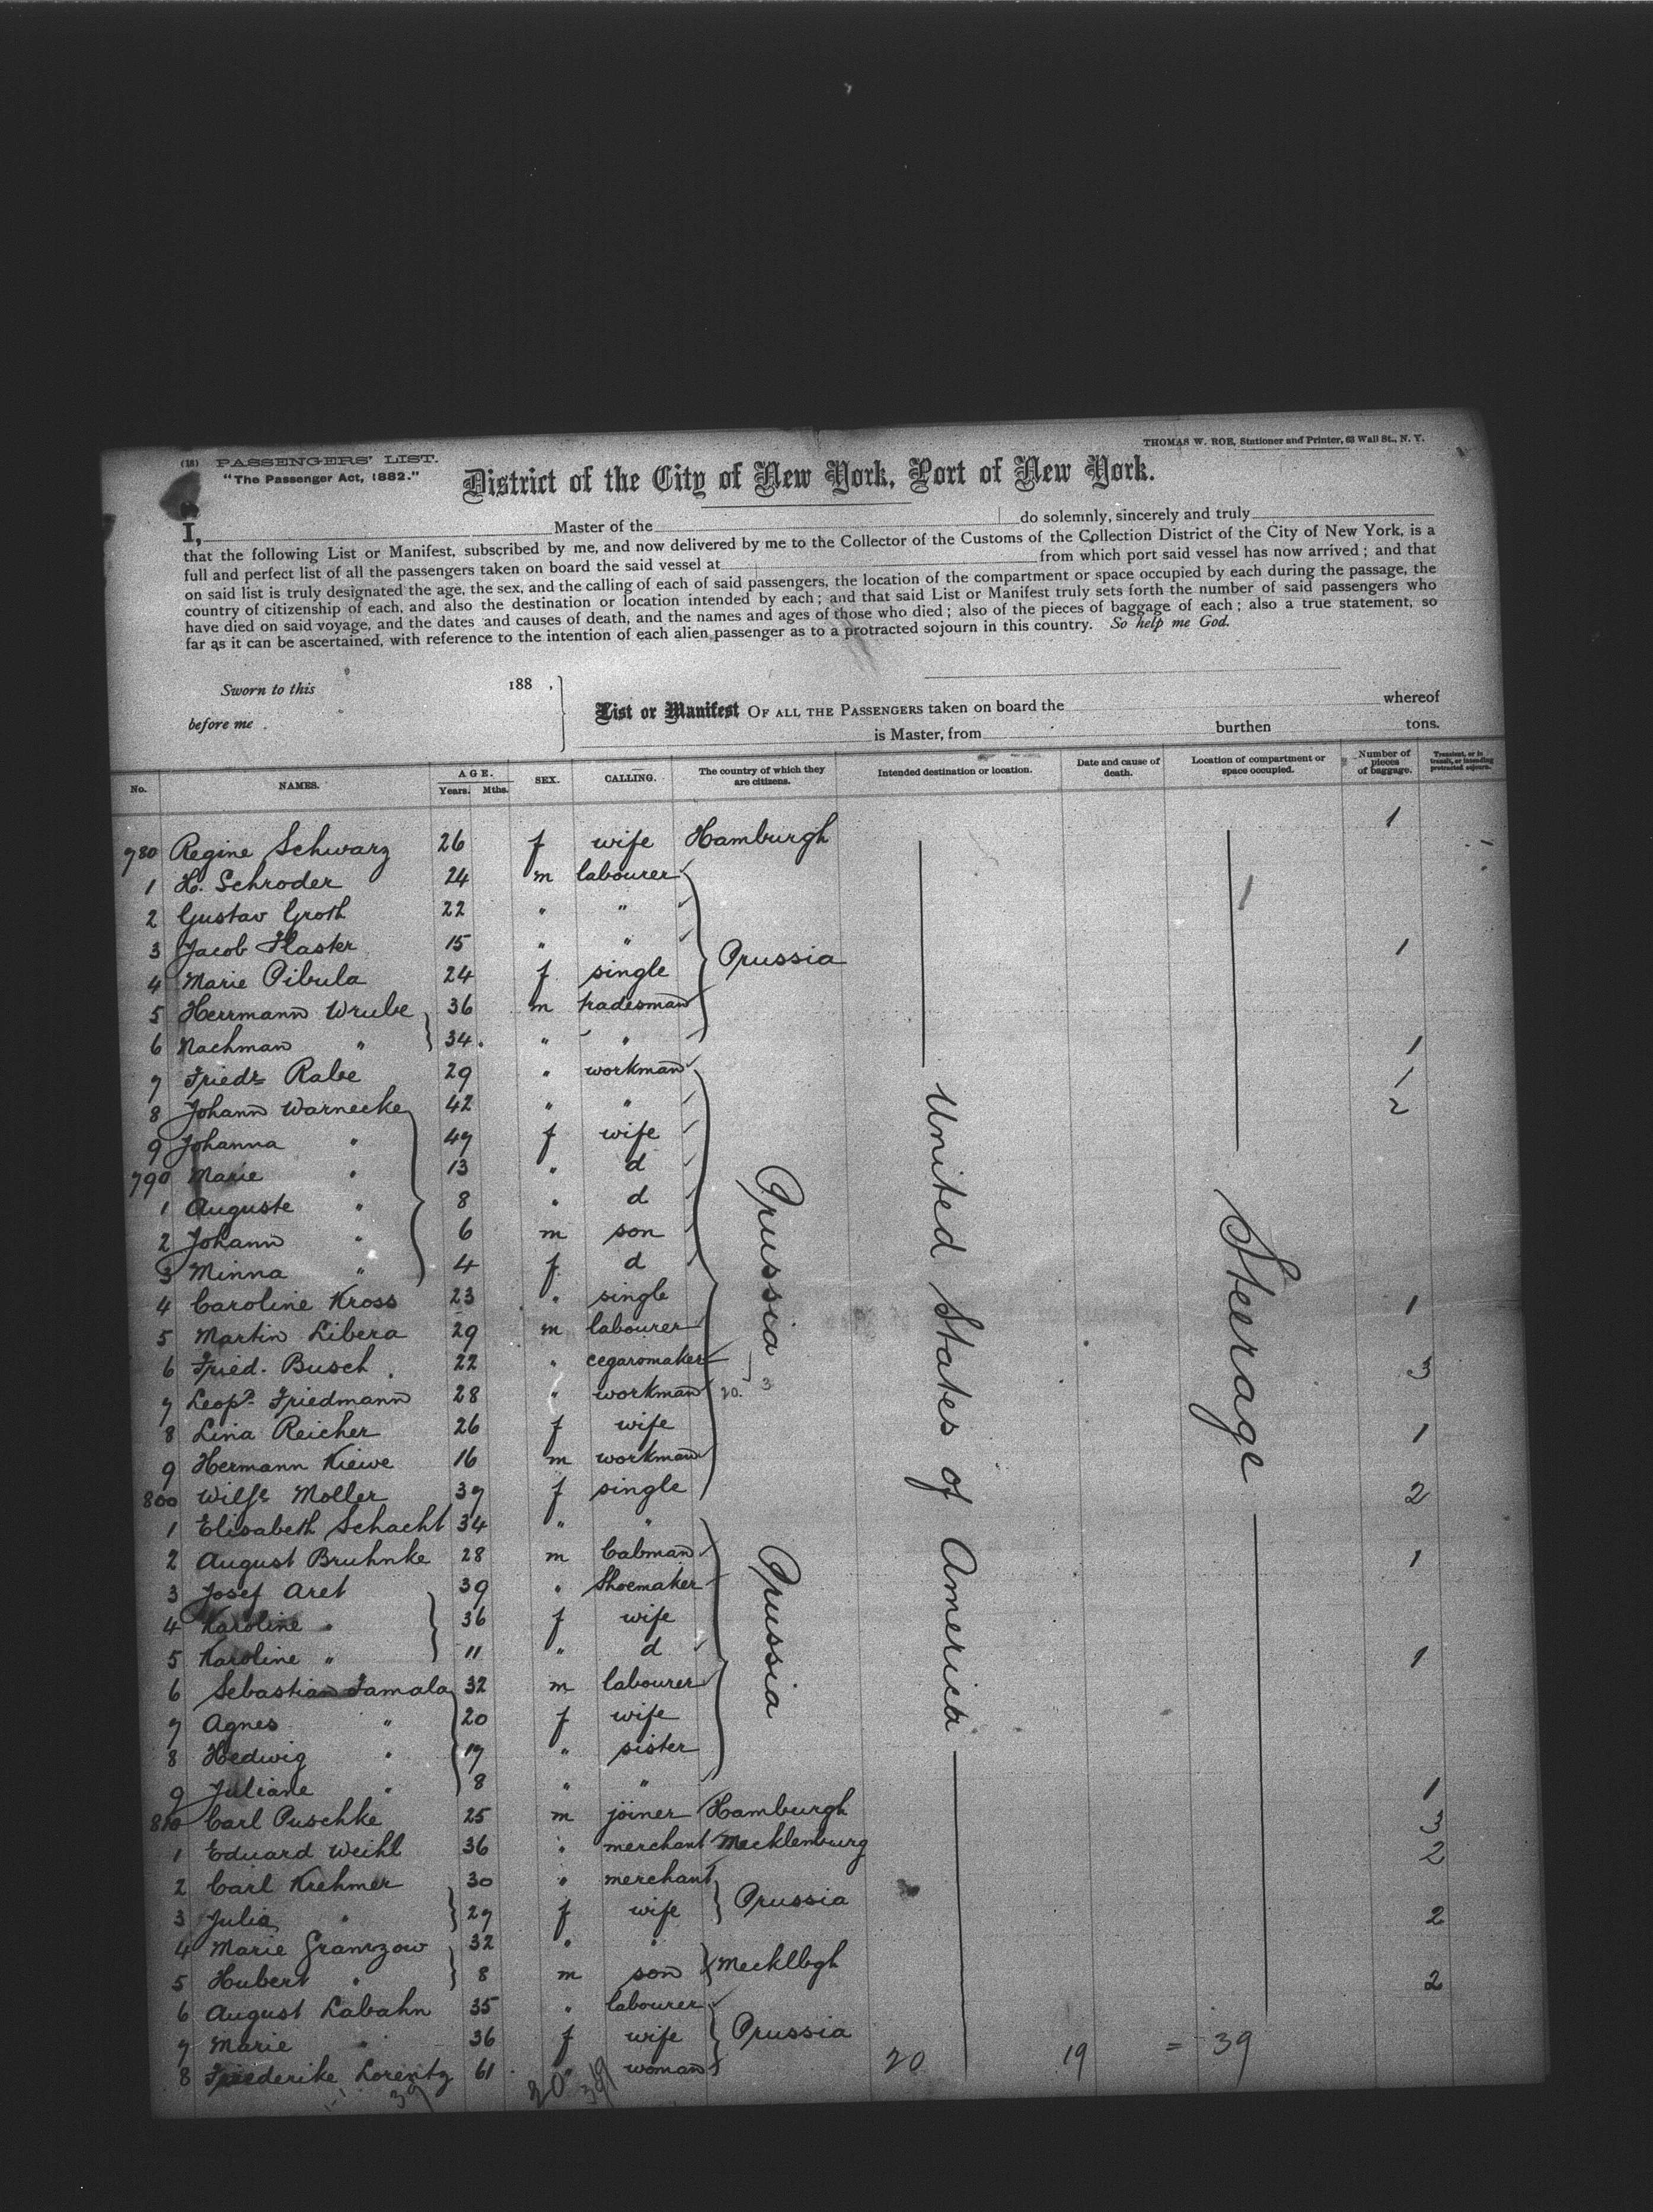 THOMAS W. ROE, Stationer and Printer, 63 Wall St., N. Y.
(18) PASSENGERS' LIST.
"The Passenger Act, 1882."
District of the City of New York, Port of New York.
I, Master of the do solemnly, sincerely and truly
that the following List or Manifest, subscribed by me, and now delivered by me to the Collector of the Customs of the Collection District of the City of New York, is a
full and perfect list of all the passengers taken on board the said vessel at from which port said vessel has now arrived; and that
on said list is truly designated the age, the sex, and the calling of each of said passengers, the location of the compartment or space occupied by each during the passage, the
country of citizenship of each, and also the destination or location intended by each; and that said List or Manifest truly sets forth the number of said passengers who
have died on said voyage, and the dates and causes of death, and the names and ages of those who died; also of the pieces of baggage of each; also a true statement, so
far as it can be ascertained, with reference to the intention of each alien passenger as to a protracted sojourn in this country. So help me God.
Sworn to this 188 ,
before me .
List or Manifest OF ALL THE PASSENGERS taken on board the whereof
is Master, from burthen tons.
No. NAMES. AGE. Years. Mths. SEX. CALLING. The country of which they are citizens. Intended destination or location. Date and cause of death. Location of compartment or space occupied. Number of pieces of baggage. Transient, or in transit, or intending protracted sojourn.
780 Regine Schwarz 26 f wife Hamburgh 1
1 H. Schroder 24 m labourer
2 Gustav Groth 22 " "
3 Jacob Flaster 15 " " Prussia 1
4 Marie Pibula 24 f single
5 Herrmann Wrube 36 m tradesman
6 Nachman " 34 " " 1
7 Friedr Rabe 29 " workman 1
8 Johann Warnecke 42 " " 2
9 Johanna " 47 f wife
790 Marie " 13 " d
1 Auguste " 8 " d
2 Johann " 6 m son
3 Minna " 4 f d
4 Caroline Kross 23 " single 1
5 Martin Libera 29 m labourer
6 Fried. Busch 22 " cegaromaker 3
7 Leopd Friedmann 28 " workman 20. 3
8 Lina Reicher 26 f wife 1
9 Hermann Kiewe 16 m workman
800 Wilhe Moller 37 f single 2
Prussia
United States of America
Steerage
1 Elisabeth Schacht 34 " "
2 August Bruhnke 28 m Cabman 1
3 Josef Aret 39 " Shoemaker
4 Karoline " 36 f wife
5 Karoline " 11 " d 1
6 Sebastian Jamala 32 m labourer
7 Agnes " 20 f wife
8 Hedwig " 17 " sister
9 Juliane " 8 " " 1
Prussia
810 Carl Puschke 25 m joiner Hamburgh 3
1 Eduard Weihl 36 " merchant Mecklenburg 2
2 Carl Krehmer 30 " merchant
3 Julia " 29 f wife Prussia 2
4 Marie Gramzow 32 " "
5 Hubert " 8 m son Mecklbgh 2
6 August Labahn 35 " labourer
7 Marie " 36 f wife Prussia
8 Friederike Lorentz 61 " woman 20 19 = 39
39 20 39